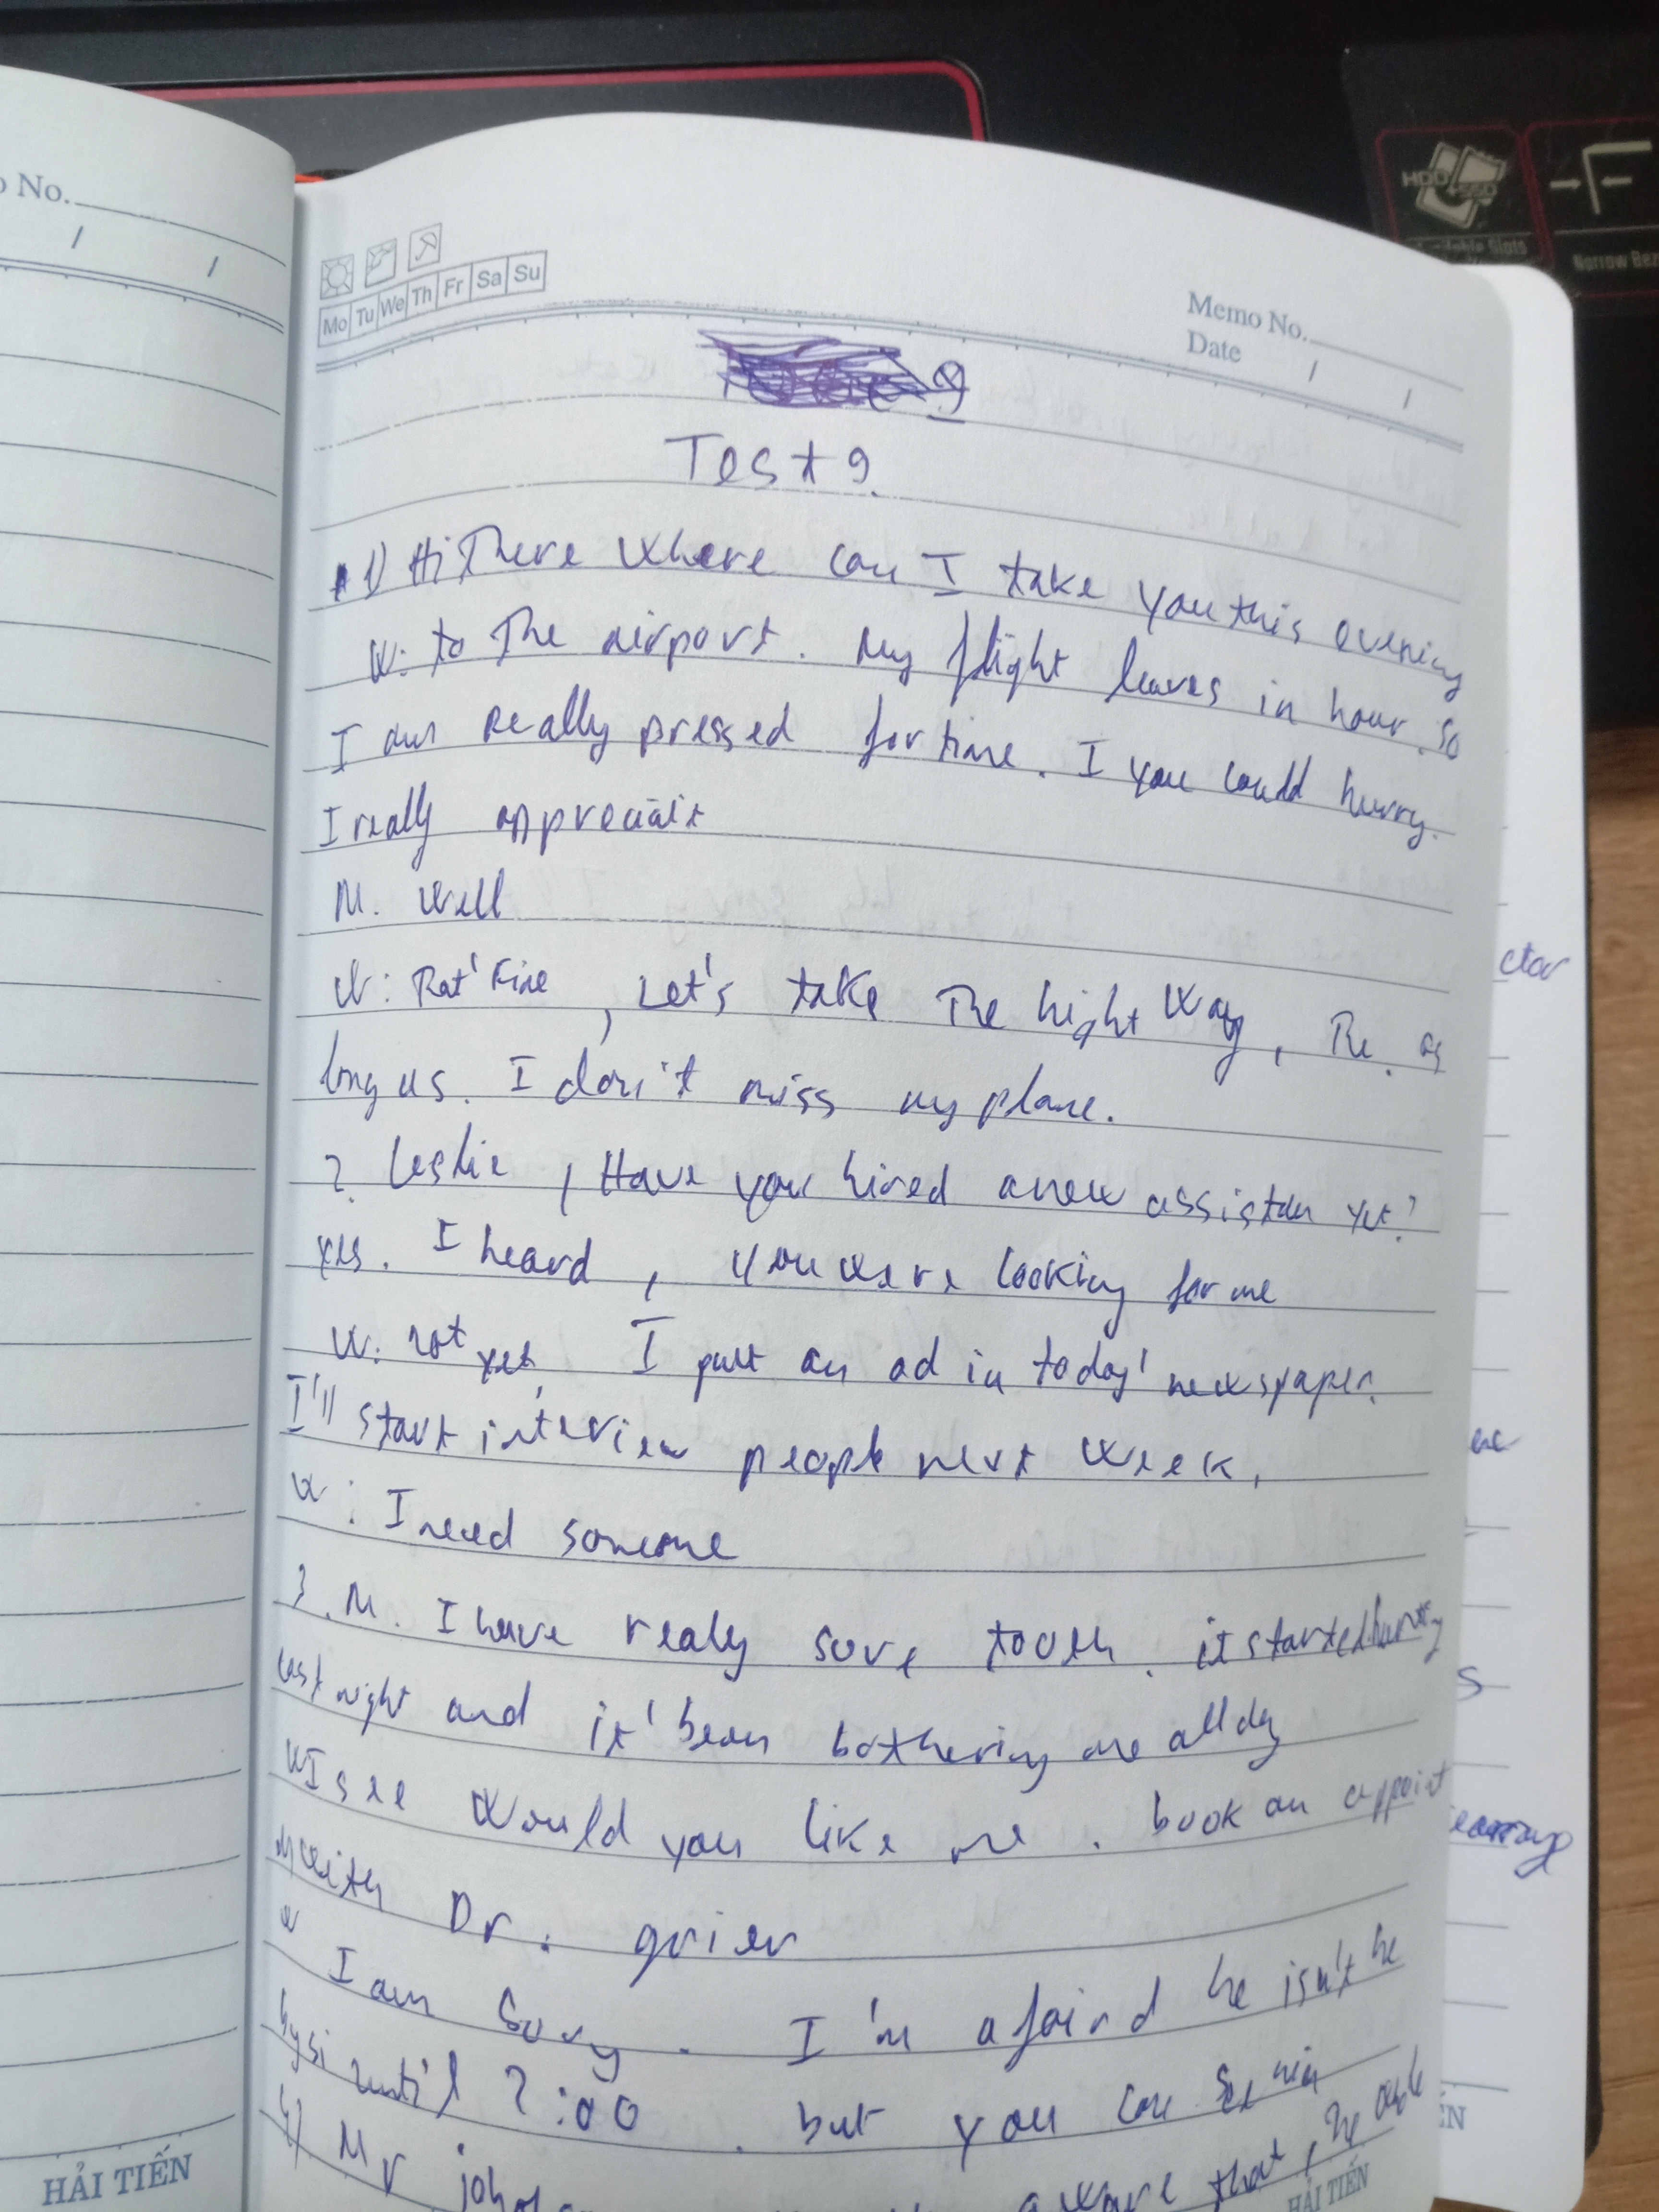 No.
/ /
Mo Tu We Th Fr Sa Su
Memo No.
Date / /
Test 9.
1) Hi There where can I take you this evening
W: to The airport. My flight leaves in hour. So
I am really pressed for time. I you could hurry.
I really appreciait
M. Well
W: That' Fine, Let's take The hight Way, The as
long as. I don't miss my plane.
2. Leslie, Have you hired a new assistan yet?
yes. I heard, you were looking for me
W: not yet, I put an ad in today' newspaper.
I'll start interview people next week.
W: I need someone
3. M. I have realy sore tooth. it started hurting
last night and it' been bothering me all day
W I see Would you like me. book an appoint
with Dr. grier
W I am Sory. I'm afaird he isn't he
until 2:00. but you can See him
4) Mr aware that, he
HẢI TIẾN
HẢI TIẾN
ctor
S
HDD
SSD
Available Slots
Narrow Bez